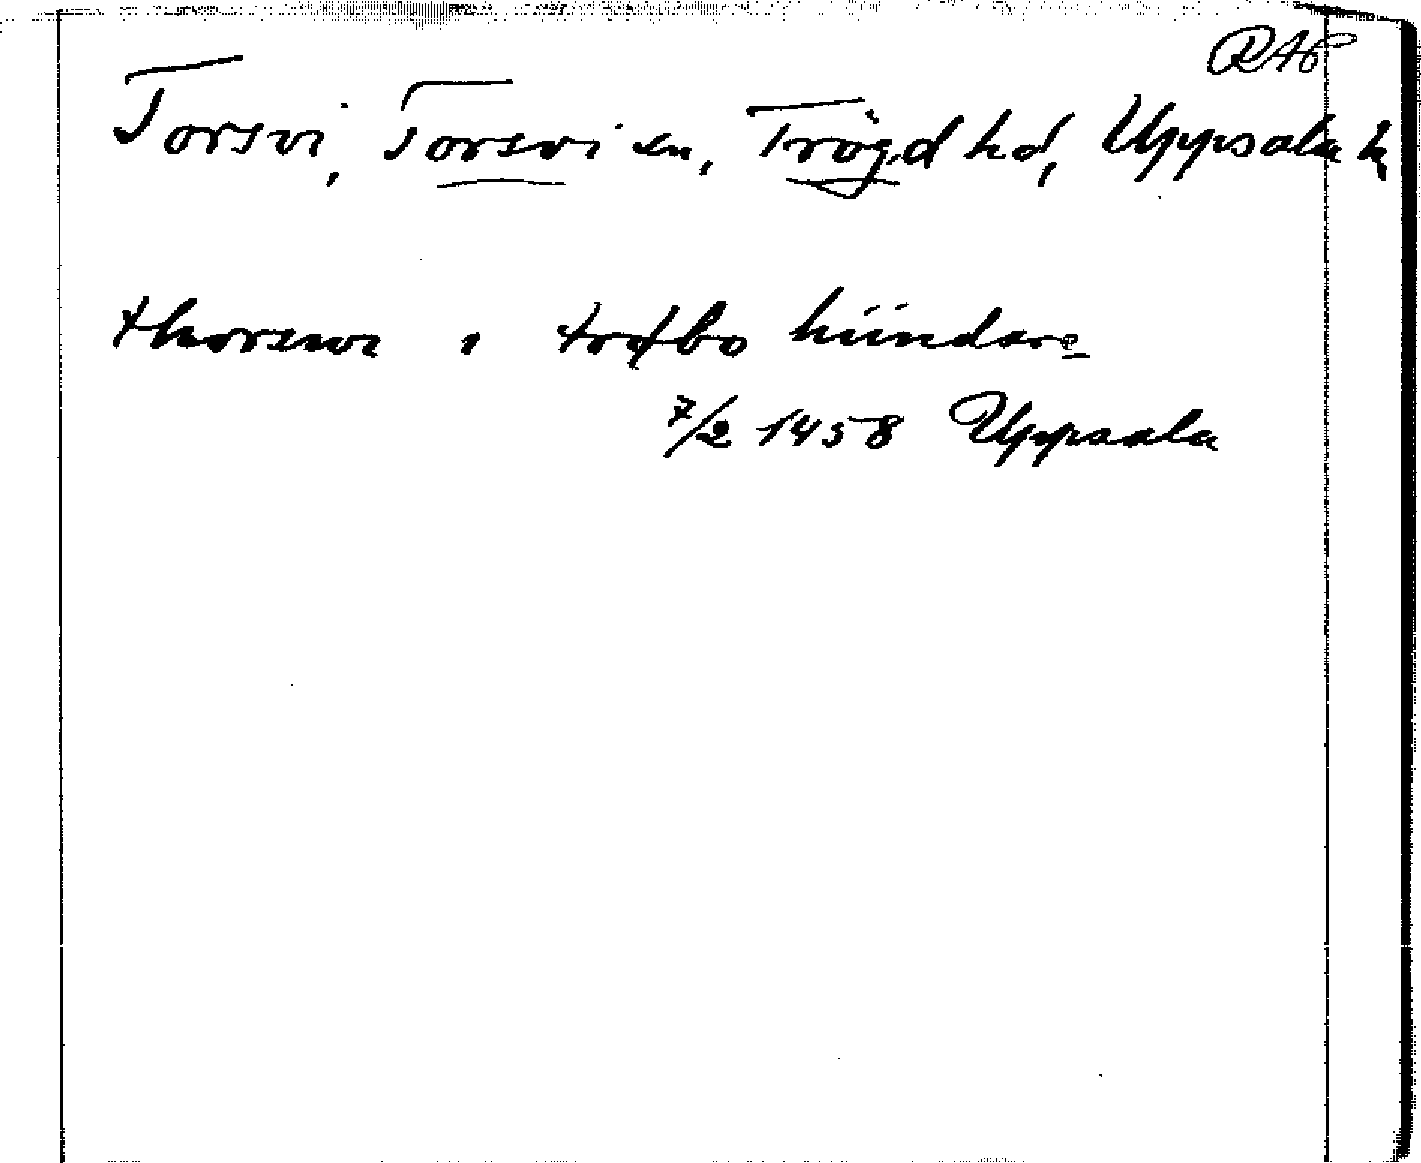 RAP
Torsvi, Torsvi sn, Trögd hd, Uppsala l
thorswi i trøbo hundare
7/2 1458 Uppsala